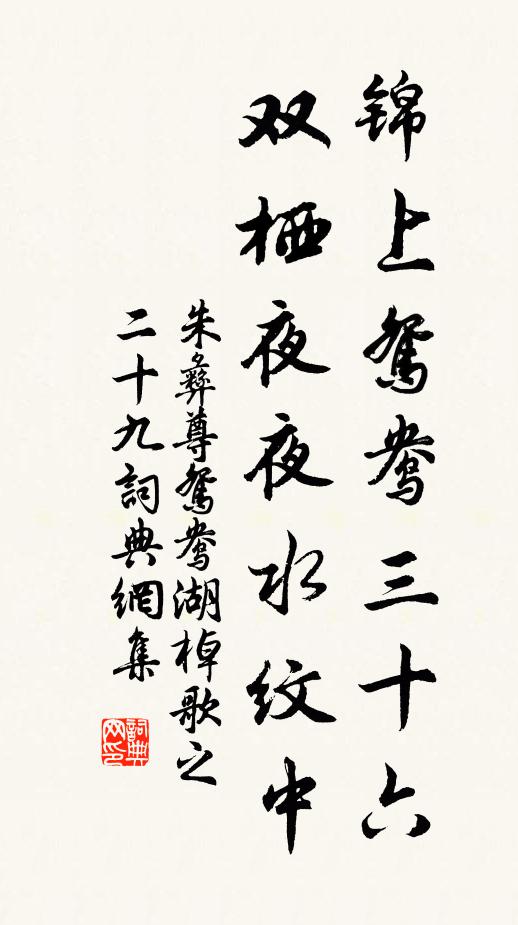 锦上鸳鸯三十六
双栖夜夜水纹中
朱彝尊鸳鸯湖棹歌之
二十九詞典網集
詞典网印